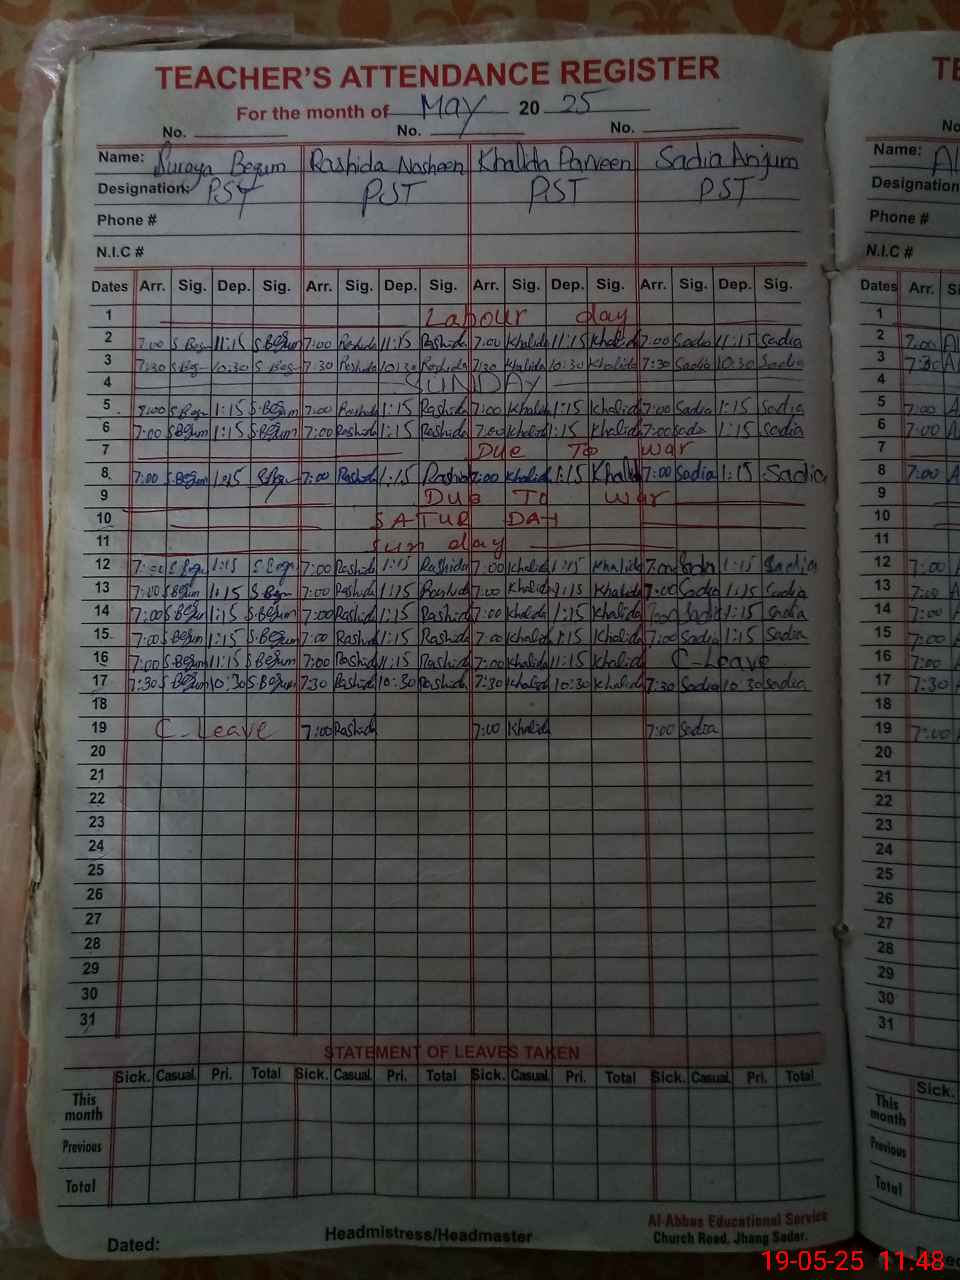 TEACHER'S ATTENDANCE REGISTER
For the month of May 20 25
No. No. No.
Name: Suraya Begum Rashida Nosheen Khalida Parveen Sadia Anjum
Designation: PST PST PST PST
Phone #
N.I.C #
Dates Arr. Sig. Dep. Sig. Arr. Sig. Dep. Sig. Arr. Sig. Dep. Sig. Arr. Sig. Dep. Sig.
1 Labour day
2 7:00 S Beg 11:15 S Begum 7:00 Rashida 11:15 Rashida 7:00 Khalida 11:15 Khalida 7:00 Sadia 11:15 Sadia
3 7:30 S Beg 10:30 S Beg 7:30 Rashida 10:30 Rashida 7:30 Khalida 10:30 Khalida 7:30 Sadia 10:30 Sadia
4 SUNDAY
5 7:00 S Begum 1:15 S.Begum 7:00 Rashida 1:15 Rashida 7:00 Khalida 1:15 Khalida 7:00 Sadia 1:15 Sadia
6 7:00 S Begum 1:15 S Begum 7:00 Rashida 1:15 Rashida 7:00 Khalida 1:15 Khalida 7:00 Sadia 1:15 Sadia
7 Due To war
8 7:00 S.Begum 1:15 7:00 Rashida 1:15 Rashida 7:00 Khalida 1:15 Khalida 7:00 Sadia 1:15 Sadia
9 Due To war
10 SATUR DAY
11 Sun day
12 7:00 S Begu 1:15 S Begu 7:00 Rashida 1:15 Rashida 7:00 Khalida 1:15 Khalida 7:00 Sadia 1:15 Sadia
13 7:00 S Begum 1:15 S Begu 7:00 Rashida 1:15 Rashida 7:00 Khalida 1:15 Khalida 7:00 Sadia 1:15 Sadia
14 7:00 S Begum 1:15 S Begum 7:00 Rashida 1:15 Rashida 7:00 Khalida 1:15 Khalida 7:00 Sadia 1:15 Sadia
15 7:00 S Begum 1:15 S Begum 7:00 Rashida 1:15 Rashida 7:00 Khalida 1:15 Khalida 7:00 Sadia 1:15 Sadia
16 7:00 S.Begum 11:15 S Begum 7:00 Rashida 11:15 Rashida 7:00 Khalida 11:15 Khalida C-Leave
17 7:30 S Begum 10:30 S Begum 7:30 Rashida 10:30 Rashida 7:30 Khalida 10:30 Khalida 7:30 Sadia 10:30 Sadia
18
19 C-Leave 7:00 Rashida 7:00 Khalida 7:00 Sadia
20
21
22
23
24
25
26
27
28
29
30
31
STATEMENT OF LEAVES TAKEN
Sick. Casual. Pri. Total Sick. Casual. Pri. Total Sick. Casual. Pri. Total Sick. Casual. Pri. Total
This month
Previous
Total
Dated: Headmistress/Headmaster
Al-Abbas Educational Service
Church Road, Jhang Sadar.
Name:
Designation
Phone #
N.I.C #
Dates Arr.
1
2 7:00
3 7:30
4
5 7:00
6 7:00
7
8 7:00
9
10
11
12 7:00
13 7:00
14 7:00
15 7:00
16 7:00
17 7:30
18
19 7:00
20
21
22
23
24
25
26
27
28
29
30
31
Sick.
This month
Previous
Total
19-05-25 11:48